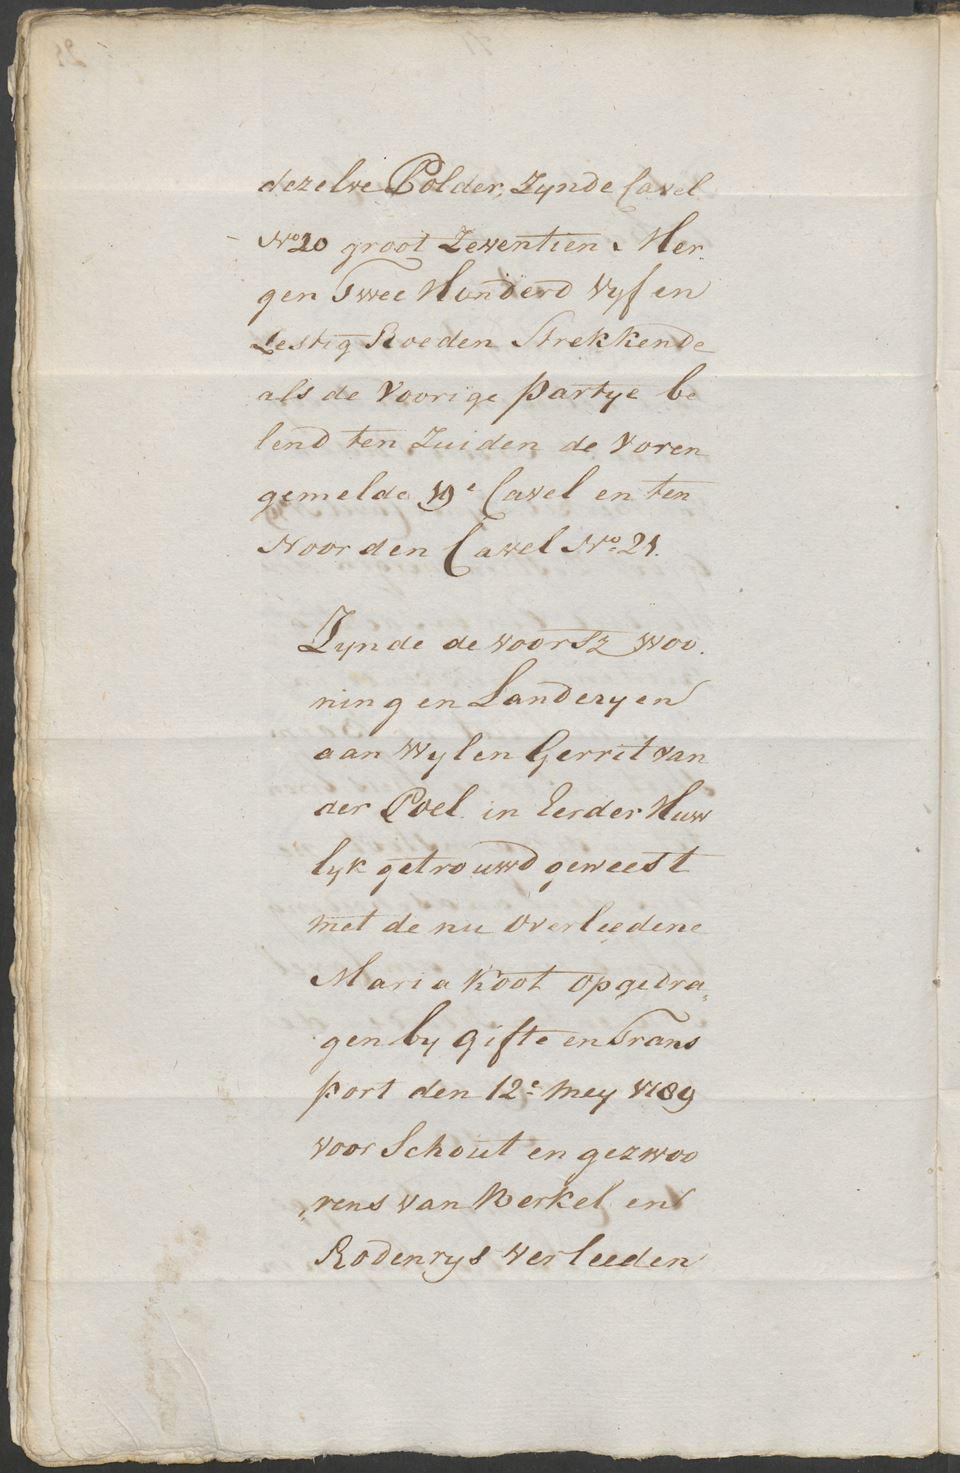 dezelve Polder, Zynde Cavel
No 20 groot Zeventien Mer
gen Twee Honderd Vyf en
Zestig Roeden Strekkende
als de Voorige partye be
lend ten Zuiden de Voren
gemelde 19e Cavel en ten
Noorden Cavel No. 21.
Zynde de voorsz woo
ning en Landeryen
aan Wylen Gerrit van
der Poel in Eerder Huw
lyk getrouwd geweest
met de nu Overleedene
Maria Koot opgedra„
gen by gifte en Trans
port den 12e Mey 1789
voor Schout en gezwoo
„rens van Berkel en
Rodenrys verleeden